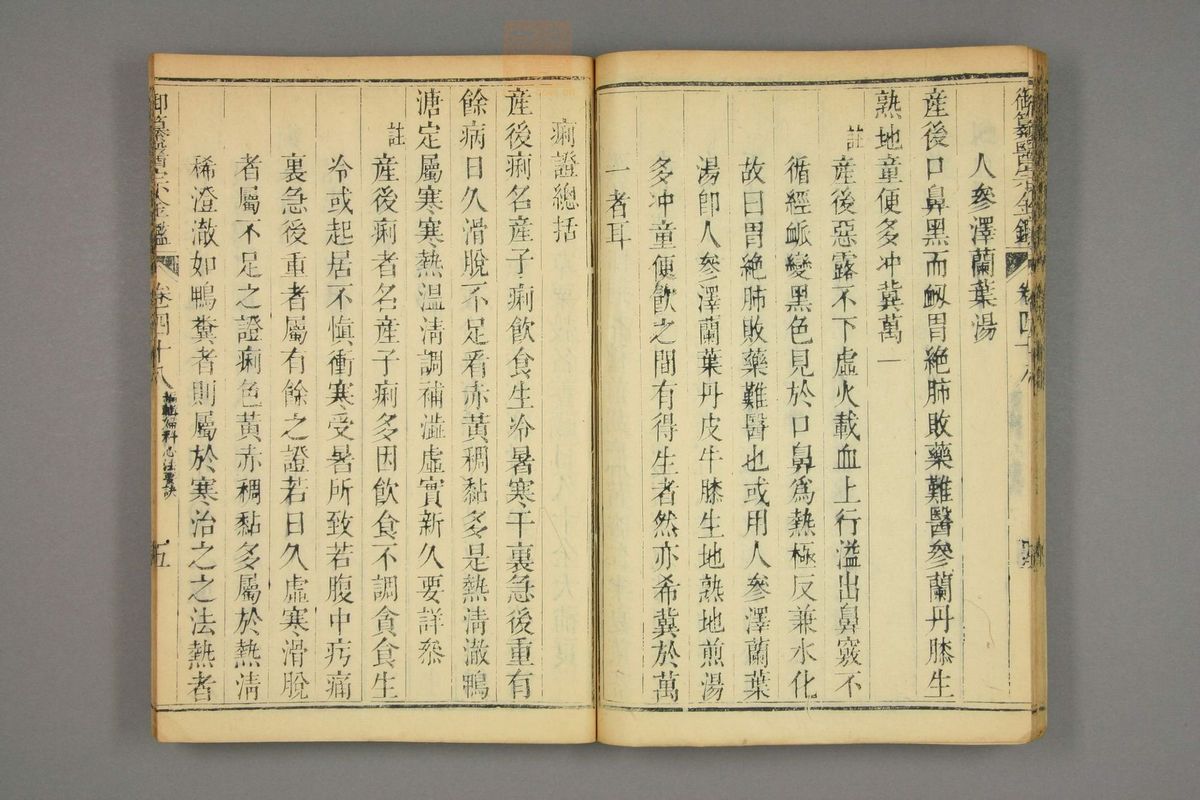 御纂醫宗金鑑 卷四十八
人參澤蘭葉湯
產後口鼻黑而衂胃絶肺敗藥難醫參蘭丹膝生
熟地童便多冲冀萬一
註
產後惡露不下虛火載血上行溢出鼻竅不
循經衇變黑色見於口鼻爲熱極反兼水化
故曰胃絶肺敗藥難醫也或用人參澤蘭葉
湯卽人參澤蘭葉丹皮牛膝生地熟地煎湯
多冲童便飮之間有得生者然亦希冀於萬
一者耳
痢證總括
產後痢名產子痢飮食生冷暑寒干裏急後重有
餘病日久滑脫不足看赤黃稠黏多是熱淸澈鴨
溏定屬寒寒熱温淸調補澁虛實新久要詳參
註
產後痢者名產子痢多因飮食不調貪食生
冷或起居不愼衝寒受暑所致若腹中㽲痛
裏急後重者屬有餘之證若日久虛寒滑脫
者屬不足之證痢色黃赤稠黏多屬於熱淸
稀澄澈如鴨糞者則屬於寒治之之法熱者
御纂醫宗金鑑 卷四十八 編輯婦科心法要訣 五